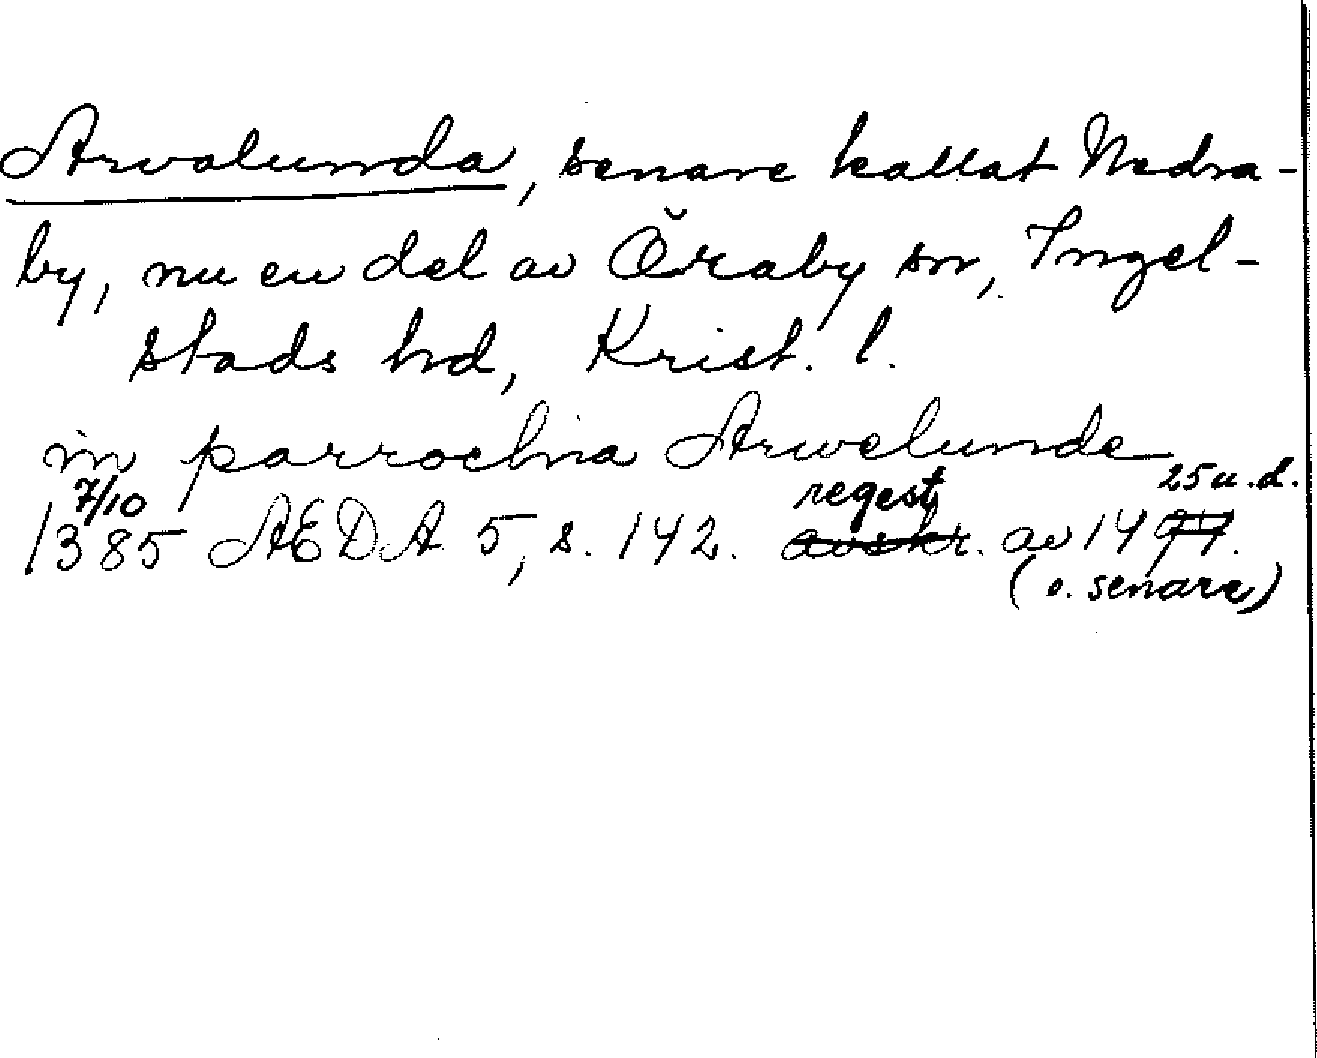 Arvalunda, senare kallat Nedra-
by, nu en del av Öraby sn, Ingel-
stads hd, Krist. l.
in parrochia Arwelunde
7/10 regest 25 u.d.
1385 AEDA 5, s. 142. avskr. av 1497.
(o. senare)